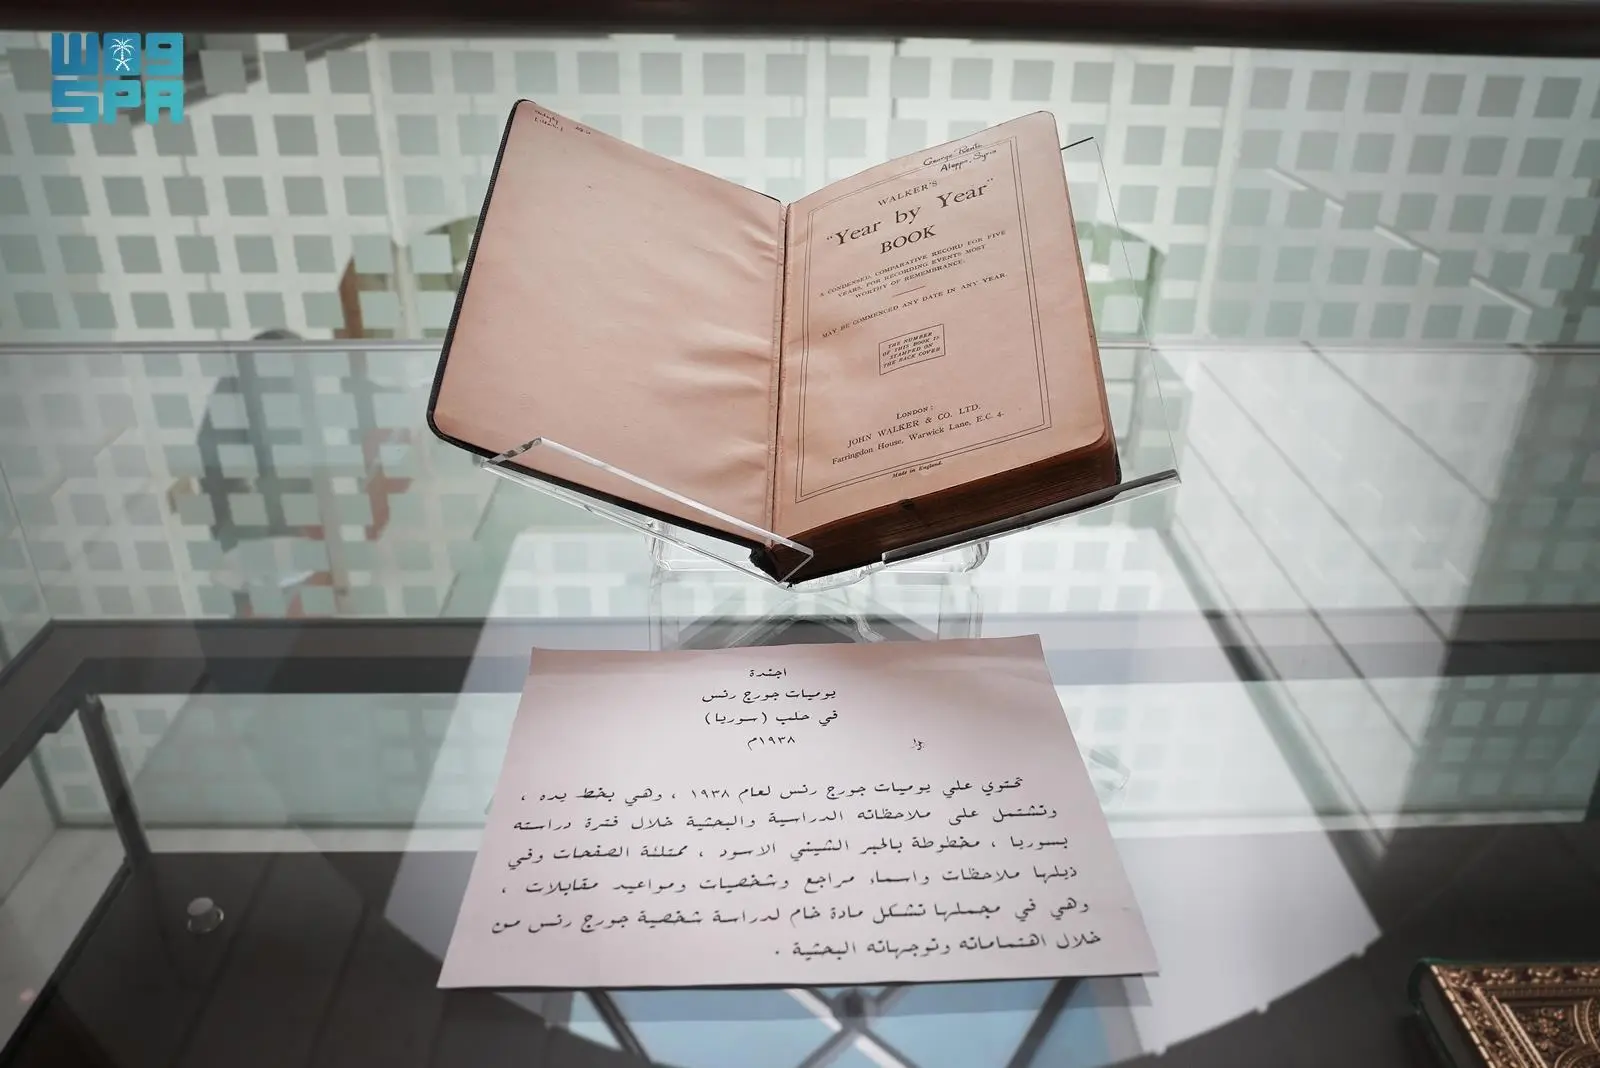 واس
SPA
George Rentz
Aleppo, Syria
WALKER'S
"Year by Year"
BOOK
A CONDENSED, COMPARATIVE RECORD FOR FIVE
YEARS, FOR RECORDING EVENTS MOST
WORTHY OF REMEMBRANCE.
MAY BE COMMENCED ANY DATE IN ANY YEAR.
THE NUMBER
OF THIS BOOK IS
STAMPED ON
THE BACK COVER
LONDON:
JOHN WALKER & CO. LTD.
Farringdon House, Warwick Lane, E.C. 4.
Made in England.
اجندة
يوميات جورج رنس
في حلب (سوريا)
١٩٣٨م
تحتوي علي يوميات جورج رنس لعام ١٩٣٨ ، وهي بخط يده ،
وتشتمل على ملاحظاته الدراسية والبحثية خلال فترة دراسته
بسوريا ، مخطوطة بالحبر الشيني الاسود ، ممتلئة الصفحات وفي
ذيلها ملاحظات واسماء مراجع وشخصيات ومواعيد مقابلات ،
وهي في مجملها تشكل مادة خام لدراسة شخصية جورج رنس من
خلال اهتماماته وتوجهاته البحثية .